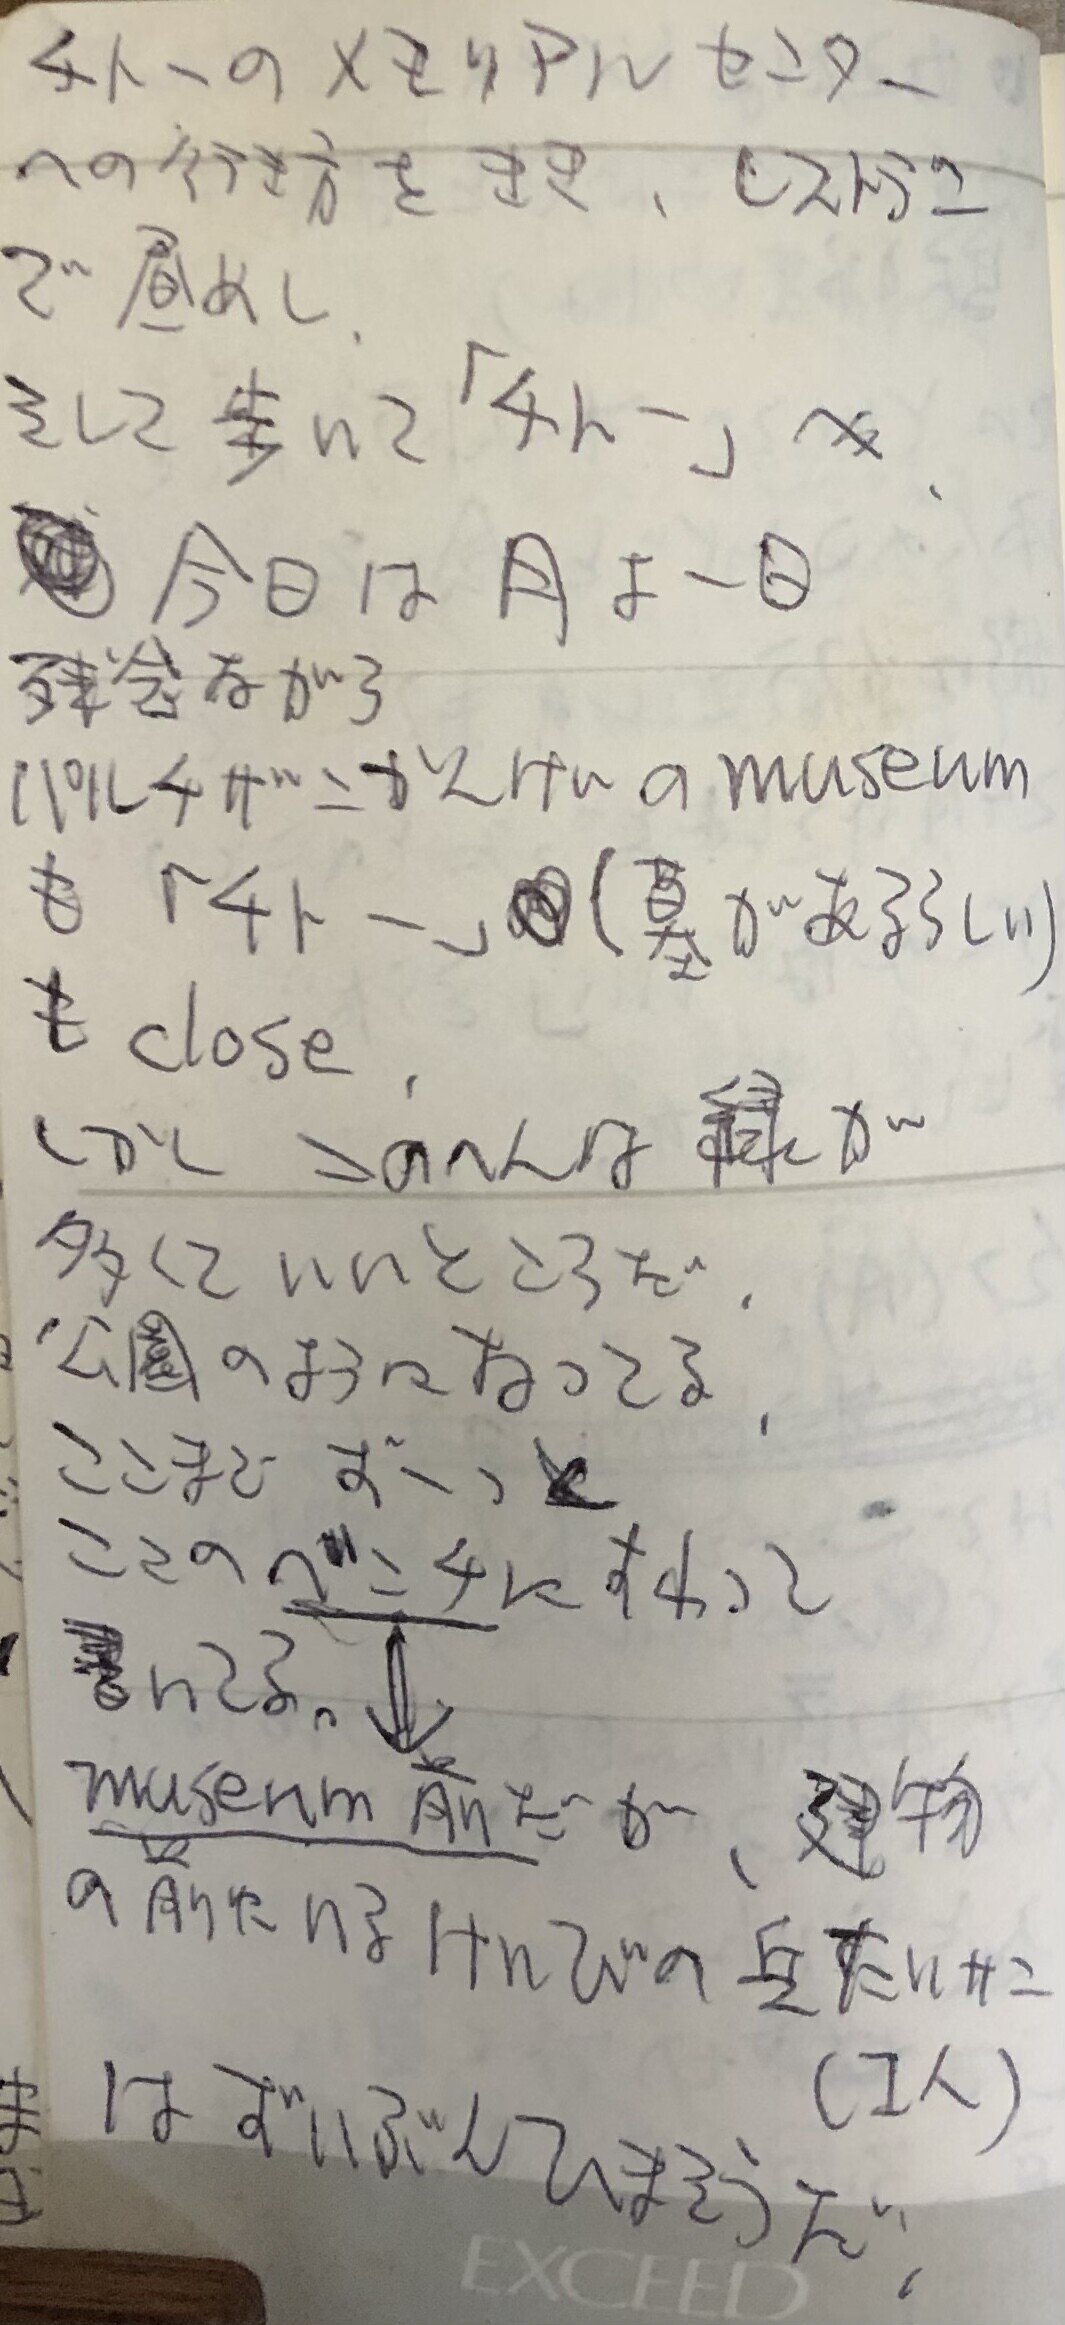 チトーのメモリアルセンター
への行き方をきき、レストラン
で昼めし、
そして歩いて「チトー」へ、
今日は月よー日
残念ながら
パルチザンかんけいのmuseum
も「チトー」(墓があるらしい)
もclose、
しかしこのへんは緑が
多くていいところだ、
公園のようになってる、
ここまでずーっと
ここのベンチにすわって
書いてる。
museum前だが、建物
の前にいるけいびの兵たいサン
(1人)
はずいぶんひまそうだ、
EXCEED